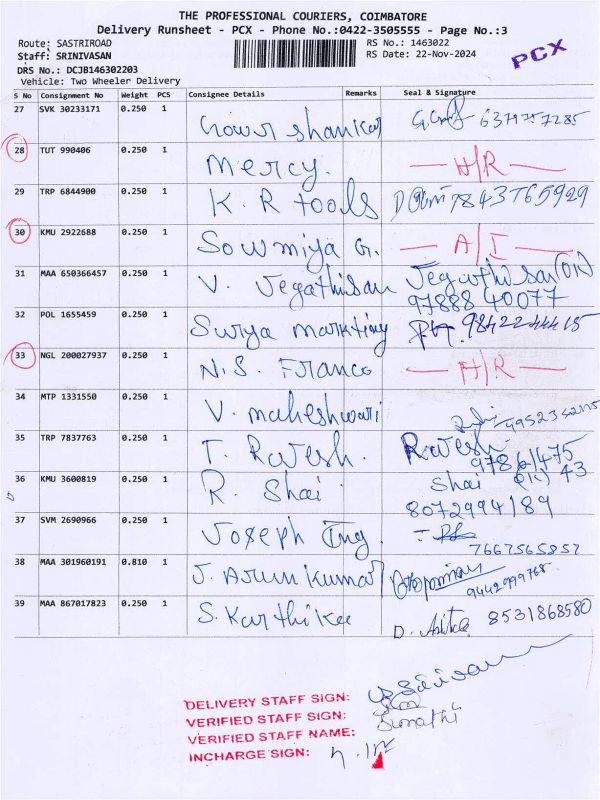 THE PROFESSIONAL COURIERS, COIMBATORE
Delivery Runsheet - PCX - Phone No.:0422-3505555 - Page No.:3
Route: SASTRIROAD RS No.: 1463022
Staff: SRINIVASAN RS Date: 22-Nov-2024
PCX
DRS No.: DCJB146302203
Vehicle: Two Wheeler Delivery
S No Consignment No Weight PCS Consignee Details Remarks Seal & Signature
27 SVK 30233171 0.250 1 Gowri shankar
28 TUT 990406 0.250 1 Mercy. H/R
29 TRP 6844900 0.250 1 K. R tools 7843765929
30 KMU 2922688 0.250 1 Sowmiya G. A/I
31 MAA 650366457 0.250 1 V. Jegathisan Jegathisan
97888 40077
32 POL 1655459 0.250 1 Surya markting 98422 44415
33 NGL 200027937 0.250 1 N.S. Franco H/R
34 MTP 1331550 0.250 1 V. maheshwari
35 TRP 7837763 0.250 1 T. Ravesh. Ravesh
36 KMU 3600819 0.250 1 R. Shai Shai
8072994189
37 SVM 2690966 0.250 1 Joseph Eng.
7667565857
38 MAA 301960191 0.810 1 J. Arun Kumar
39 MAA 867017823 0.250 1 S. Karthikee 8531868580
DELIVERY STAFF SIGN:
VERIFIED STAFF SIGN:
VERIFIED STAFF NAME: Sumathi
INCHARGE SIGN: